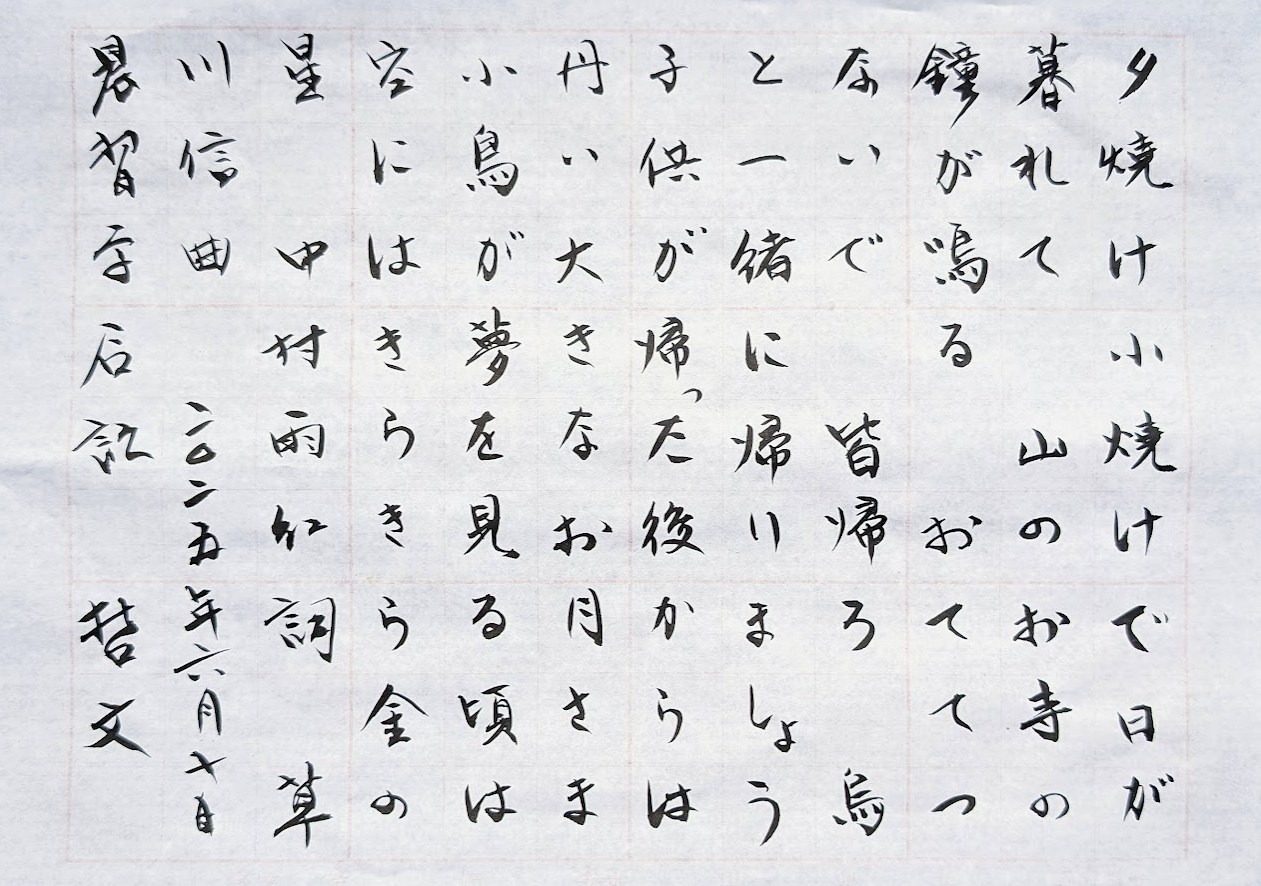 夕焼け小焼けで日が
暮れて 山のお寺の
鐘が鳴る おててつ
ないで 皆帰ろ 烏
と一緒に帰りましょう
子供が帰った後からは
丹い大きなお月さま
小鳥が夢を見る頃は
空にはきらきら金の
星 中村雨紅詞 草
川信曲 二〇二五年六月七日
晨習字后記 哲文